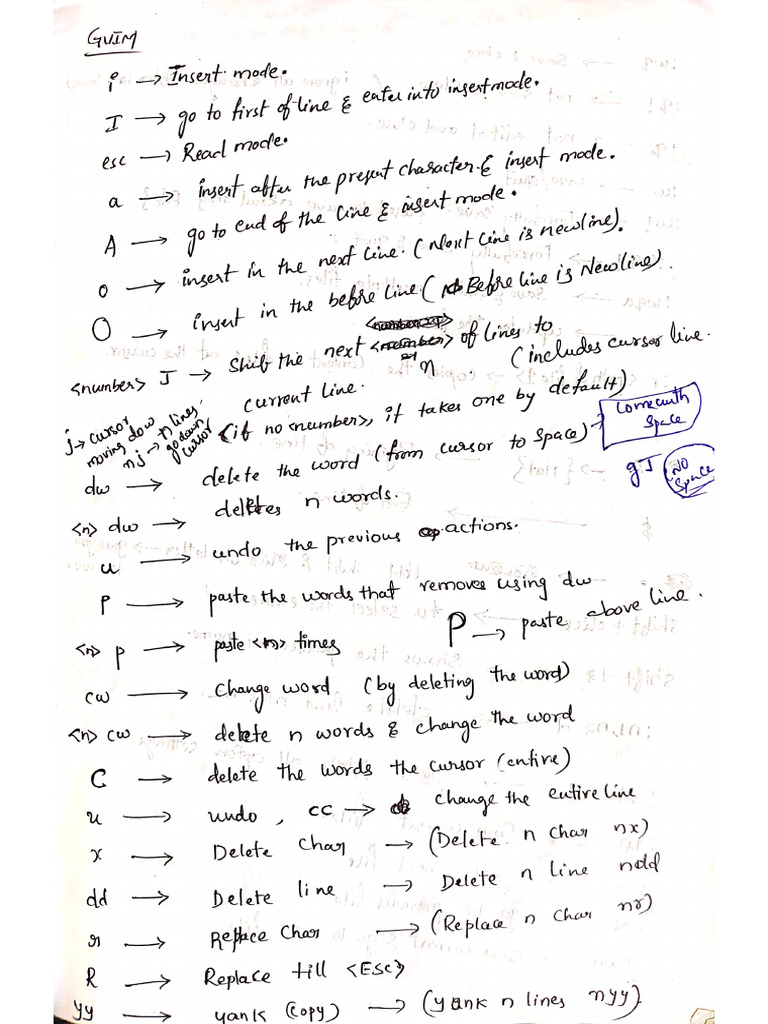 GVIM
i → Insert mode.
I → go to first of line & enter into insert mode.
esc → Read mode.
a → insert after the present character & insert mode.
A → go to end of the line & insert mode.
o → insert in the next line. (Next line is newline).
O → insert in the before line (Before line is Newline)
<number> J → Shift the next <number> n of lines to
current line. (includes cursor line.
(if no <number>, it takes one by default)
j → cursor
moving dow
nj → n lines
go down
cursor
dw → delete the word (from cursor to space)
space
gJ (NO
space)
<n> dw → deletes n words.
u → undo the previous actions.
p → paste the words that removes using dw
<n> p → paste <n> times
P → paste above line.
cw → change word (by deleting the word)
<n> cw → delete n words & change the word
C → delete the words the cursor (entire)
u → undo, cc → change the entire line
x → Delete char → (Delete n char nx)
dd → Delete line → Delete n line ndd
r → Replace char → (Replace n char nr)
R → Replace till <ESC>
yy → yank (copy) → (yank n lines nyy)